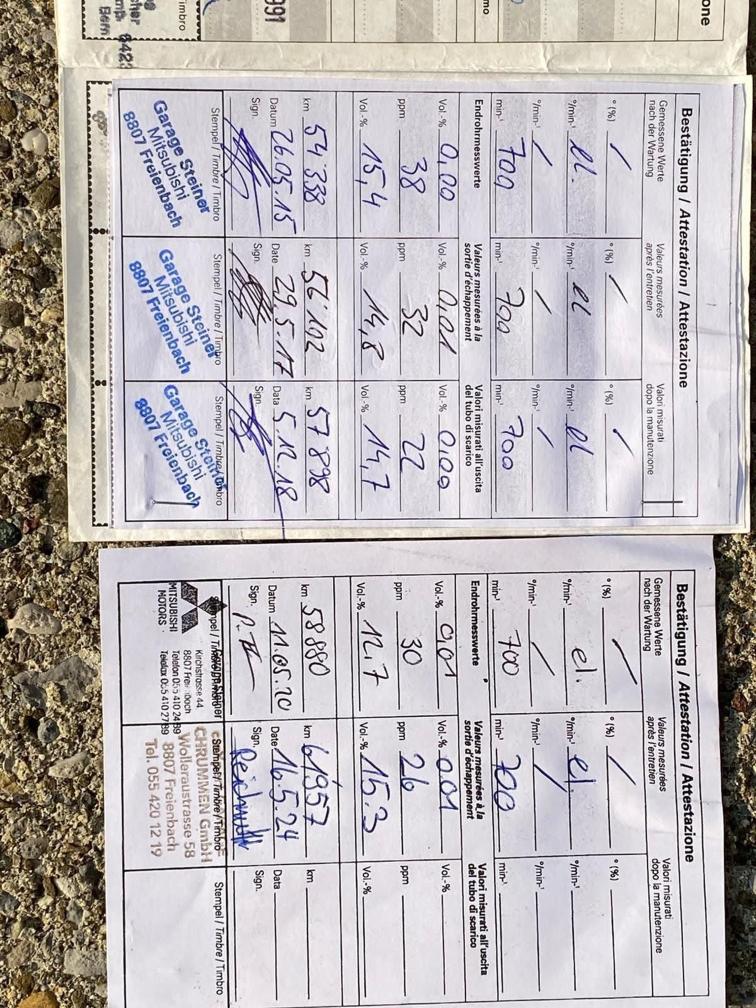 one
Timbro
991
Bern
Bestätigung / Attestation / Attestazione
Gemessene Werte
nach der Wartung
° (%) /
°/min-¹ el.
°/min-¹ /
min-¹ 700
Endrohrmesswerte
Vol.-% 0,00
ppm 38
Vol.-% 15,4
km 54 338
Datum 26.05.15
Sign.
Stempel / Timbre / Timbro
Garage Steiner
Mitsubishi
8807 Freienbach
Valeurs mesurées
après l'entretien
° (%) /
°/min-¹ el
°/min-¹ /
min-¹ 700
Valeurs mesurées à la
sortie d'échappement
Vol.-% 0,01
ppm 32
Vol.-% 14,8
km 56 102
Date 29.5.17
Sign.
Stempel / Timbre / Timbro
Garage Steiner
Mitsubishi
8807 Freienbach
Valori misurati
dopo la manutenzione
° (%) /
°/min-¹ el
°/min-¹ /
min-¹ 700
Valori misurati all'uscita
del tubo di scarico
Vol.-% 0,00
ppm 22
Vol.-% 14,7
km 57 898
Data 5.12.18
Sign.
Stempel / Timbre / Timbro
Garage Steiner
Mitsubishi
8807 Freienbach
Bestätigung / Attestation / Attestazione
Gemessene Werte
nach der Wartung
° (%) /
°/min-¹ el.
°/min-¹ /
min-¹ 700
Endrohrmesswerte
Vol.-% 0,01
ppm 30
Vol.-% 12.7
km 58880
Datum 11.05.20
Sign.
Stempel / Timbre / Timbro
Garage Steiner
Kirchstrasse 44
8807 Freienbach
Telefon 055 410 24 89
Telefax 055 410 27 89
MITSUBISHI
MOTORS
Valeurs mesurées
après l'entretien
° (%) /
°/min-¹ el.
°/min-¹ /
min-¹ 700
Valeurs mesurées à la
sortie d'échappement
Vol.-% 0.01
ppm 26
Vol.-% 15.3
km 61957
Date 16.5.24
Sign.
Stempel / Timbre / Timbro
CHRUMMEN GmbH
Wolleraustrasse 58
8807 Freienbach
Tel. 055 420 12 19
Valori misurati
dopo la manutenzione
° (%)
°/min-¹
°/min-¹
min-¹
Valori misurati all'uscita
del tubo di scarico
Vol.-%
ppm
Vol.-%
km
Data
Sign.
Stempel / Timbre / Timbro